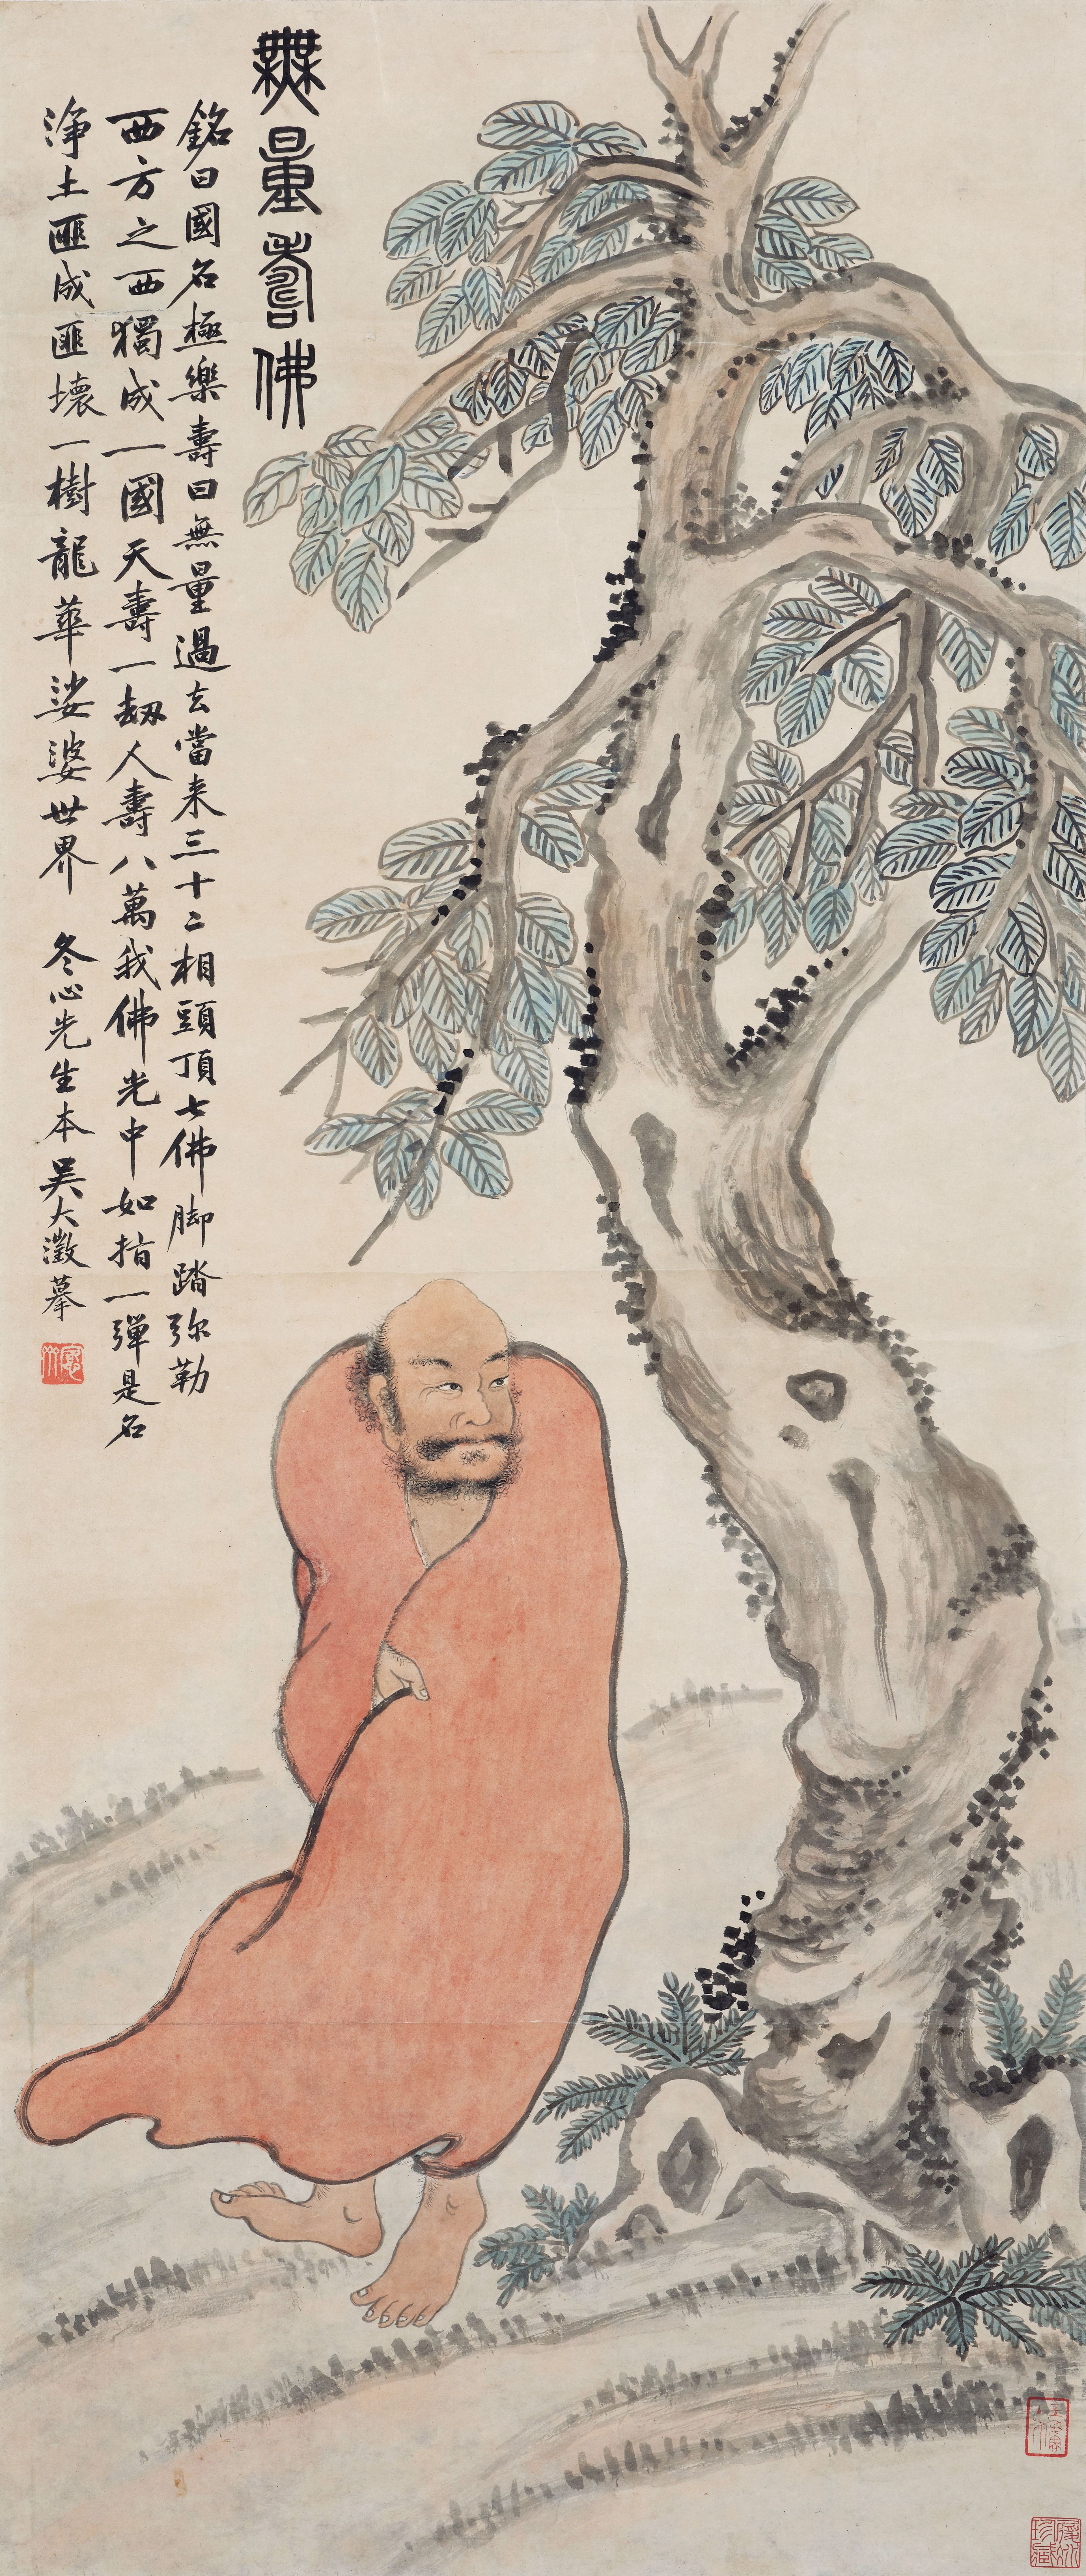 無量壽佛
銘曰國名極樂壽曰無量過去當来三十二相頭頂七佛脚踏弥勒
西方之西獨成一國天壽一劫人壽八萬我佛光中如指一彈是名
淨土匪成匪壞一樹龍華娑婆世界 冬心先生本 吳大澂摹